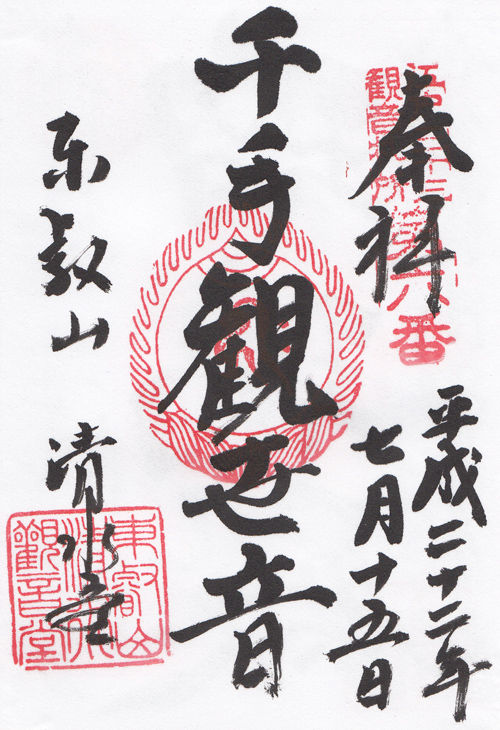 奉拝
江戸三十三
観音札所第六番
平成二十二年
七月十五日
千手観世音
東叡山
清水堂
東叡山
清水
觀音堂